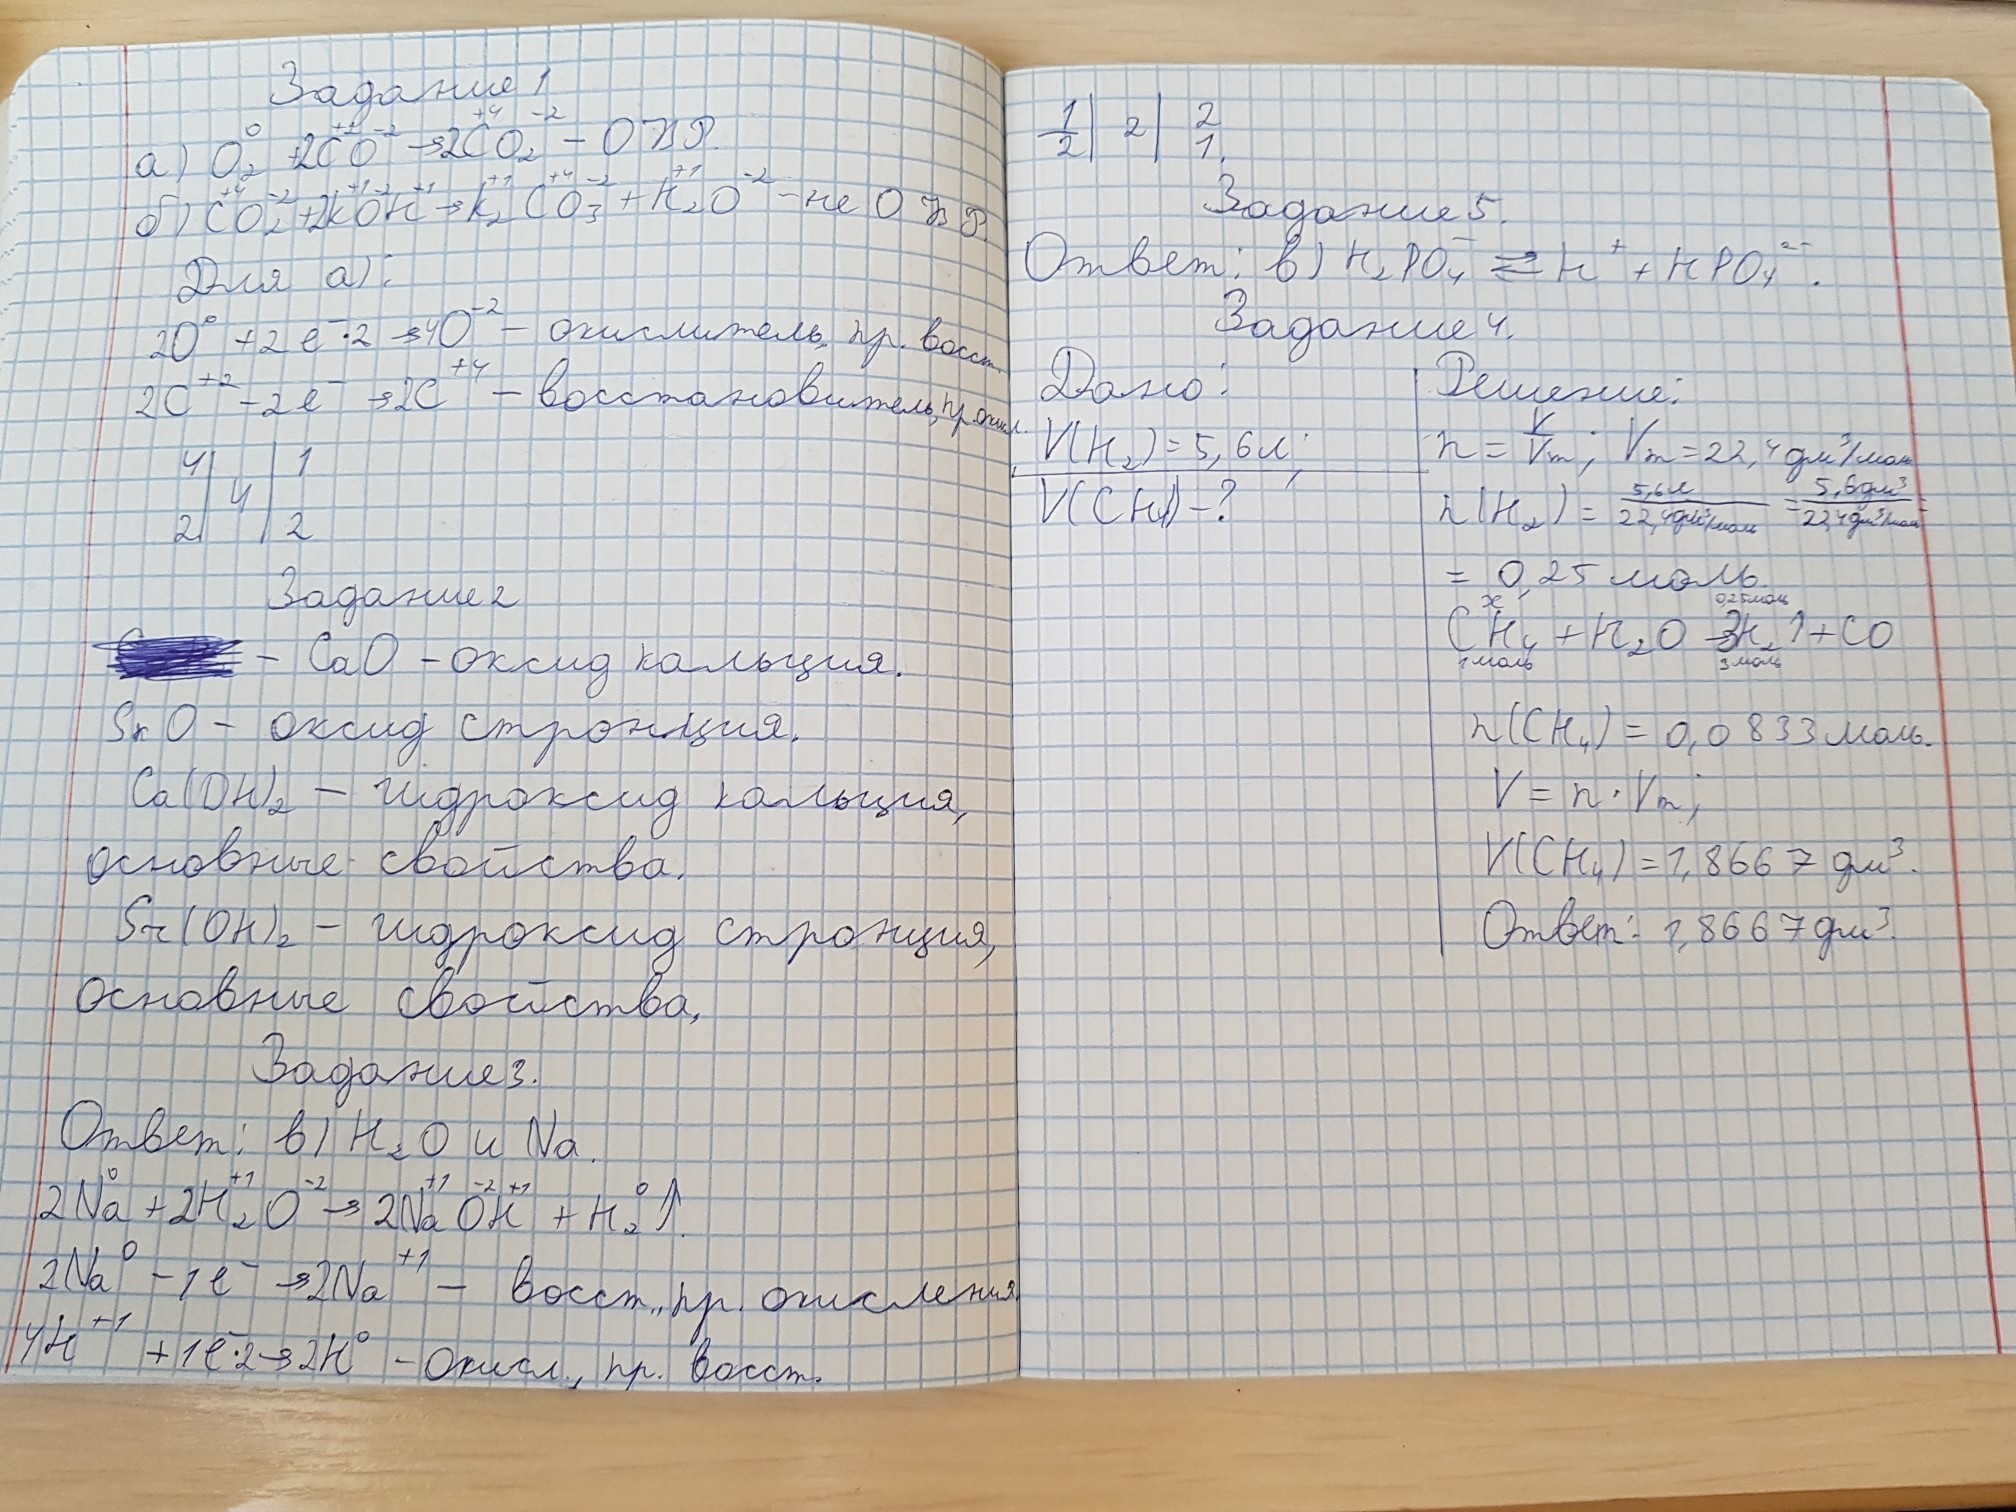 Задание 1
а) O₂⁰ + 2C⁺²O⁻² → 2C⁺⁴O₂⁻² – ОВР.
б) C⁺⁴O₂⁻² + 2K⁺¹O⁻²H⁺¹ → K₂⁺¹C⁺⁴O₃⁻² + H₂⁺¹O⁻² – не ОВР.
Для а):
2O⁰ + 2e⁻·2 → 4O⁻² – окислитель, пр. восст.
2C⁺² – 2e⁻ → 2C⁺⁴ – восстановитель, пр. окисл.
4 | | 1
4
2 | | 2
Задание 2
– CaO – оксид кальция.
SrO – оксид стронция.
Ca(OH)₂ – гидроксид кальция,
основные свойства.
Sr(OH)₂ – гидроксид стронция,
основные свойства,
Задание 3.
Ответ: в) H₂O и Na.
2Na⁰ + 2H₂⁺¹O⁻² → 2Na⁺¹O⁻²H⁺¹ + H₂⁰↑.
2Na⁰ – 1e⁻ → 2Na⁺¹ – восст., пр. окисления.
4H⁺¹ + 1e⁻·2 → 2H⁰ – окисл., пр. восст.
1 | | 2
2
2 | | 1.
Задание 5.
Ответ: в) H₂PO₄⁻ ⇄ H⁺ + HPO₄²⁻.
Задание 4.
Дано:
V(H₂) = 5,6 л;
V(CH₄) – ?
Решение:
n = V/Vm; Vm = 22,4 дм³/моль
n(H₂) = 5,6л/22,4дм³/моль = 5,6дм³/22,4дм³/моль =
= 0,25 моль.
x 0,25 моль
CH₄ + H₂O → 3H₂↑ + CO
1 моль 3 моль
n(CH₄) = 0,0833 моль.
V = n · Vm;
V(CH₄) = 1,8667 дм³.
Ответ: 1,8667 дм³.